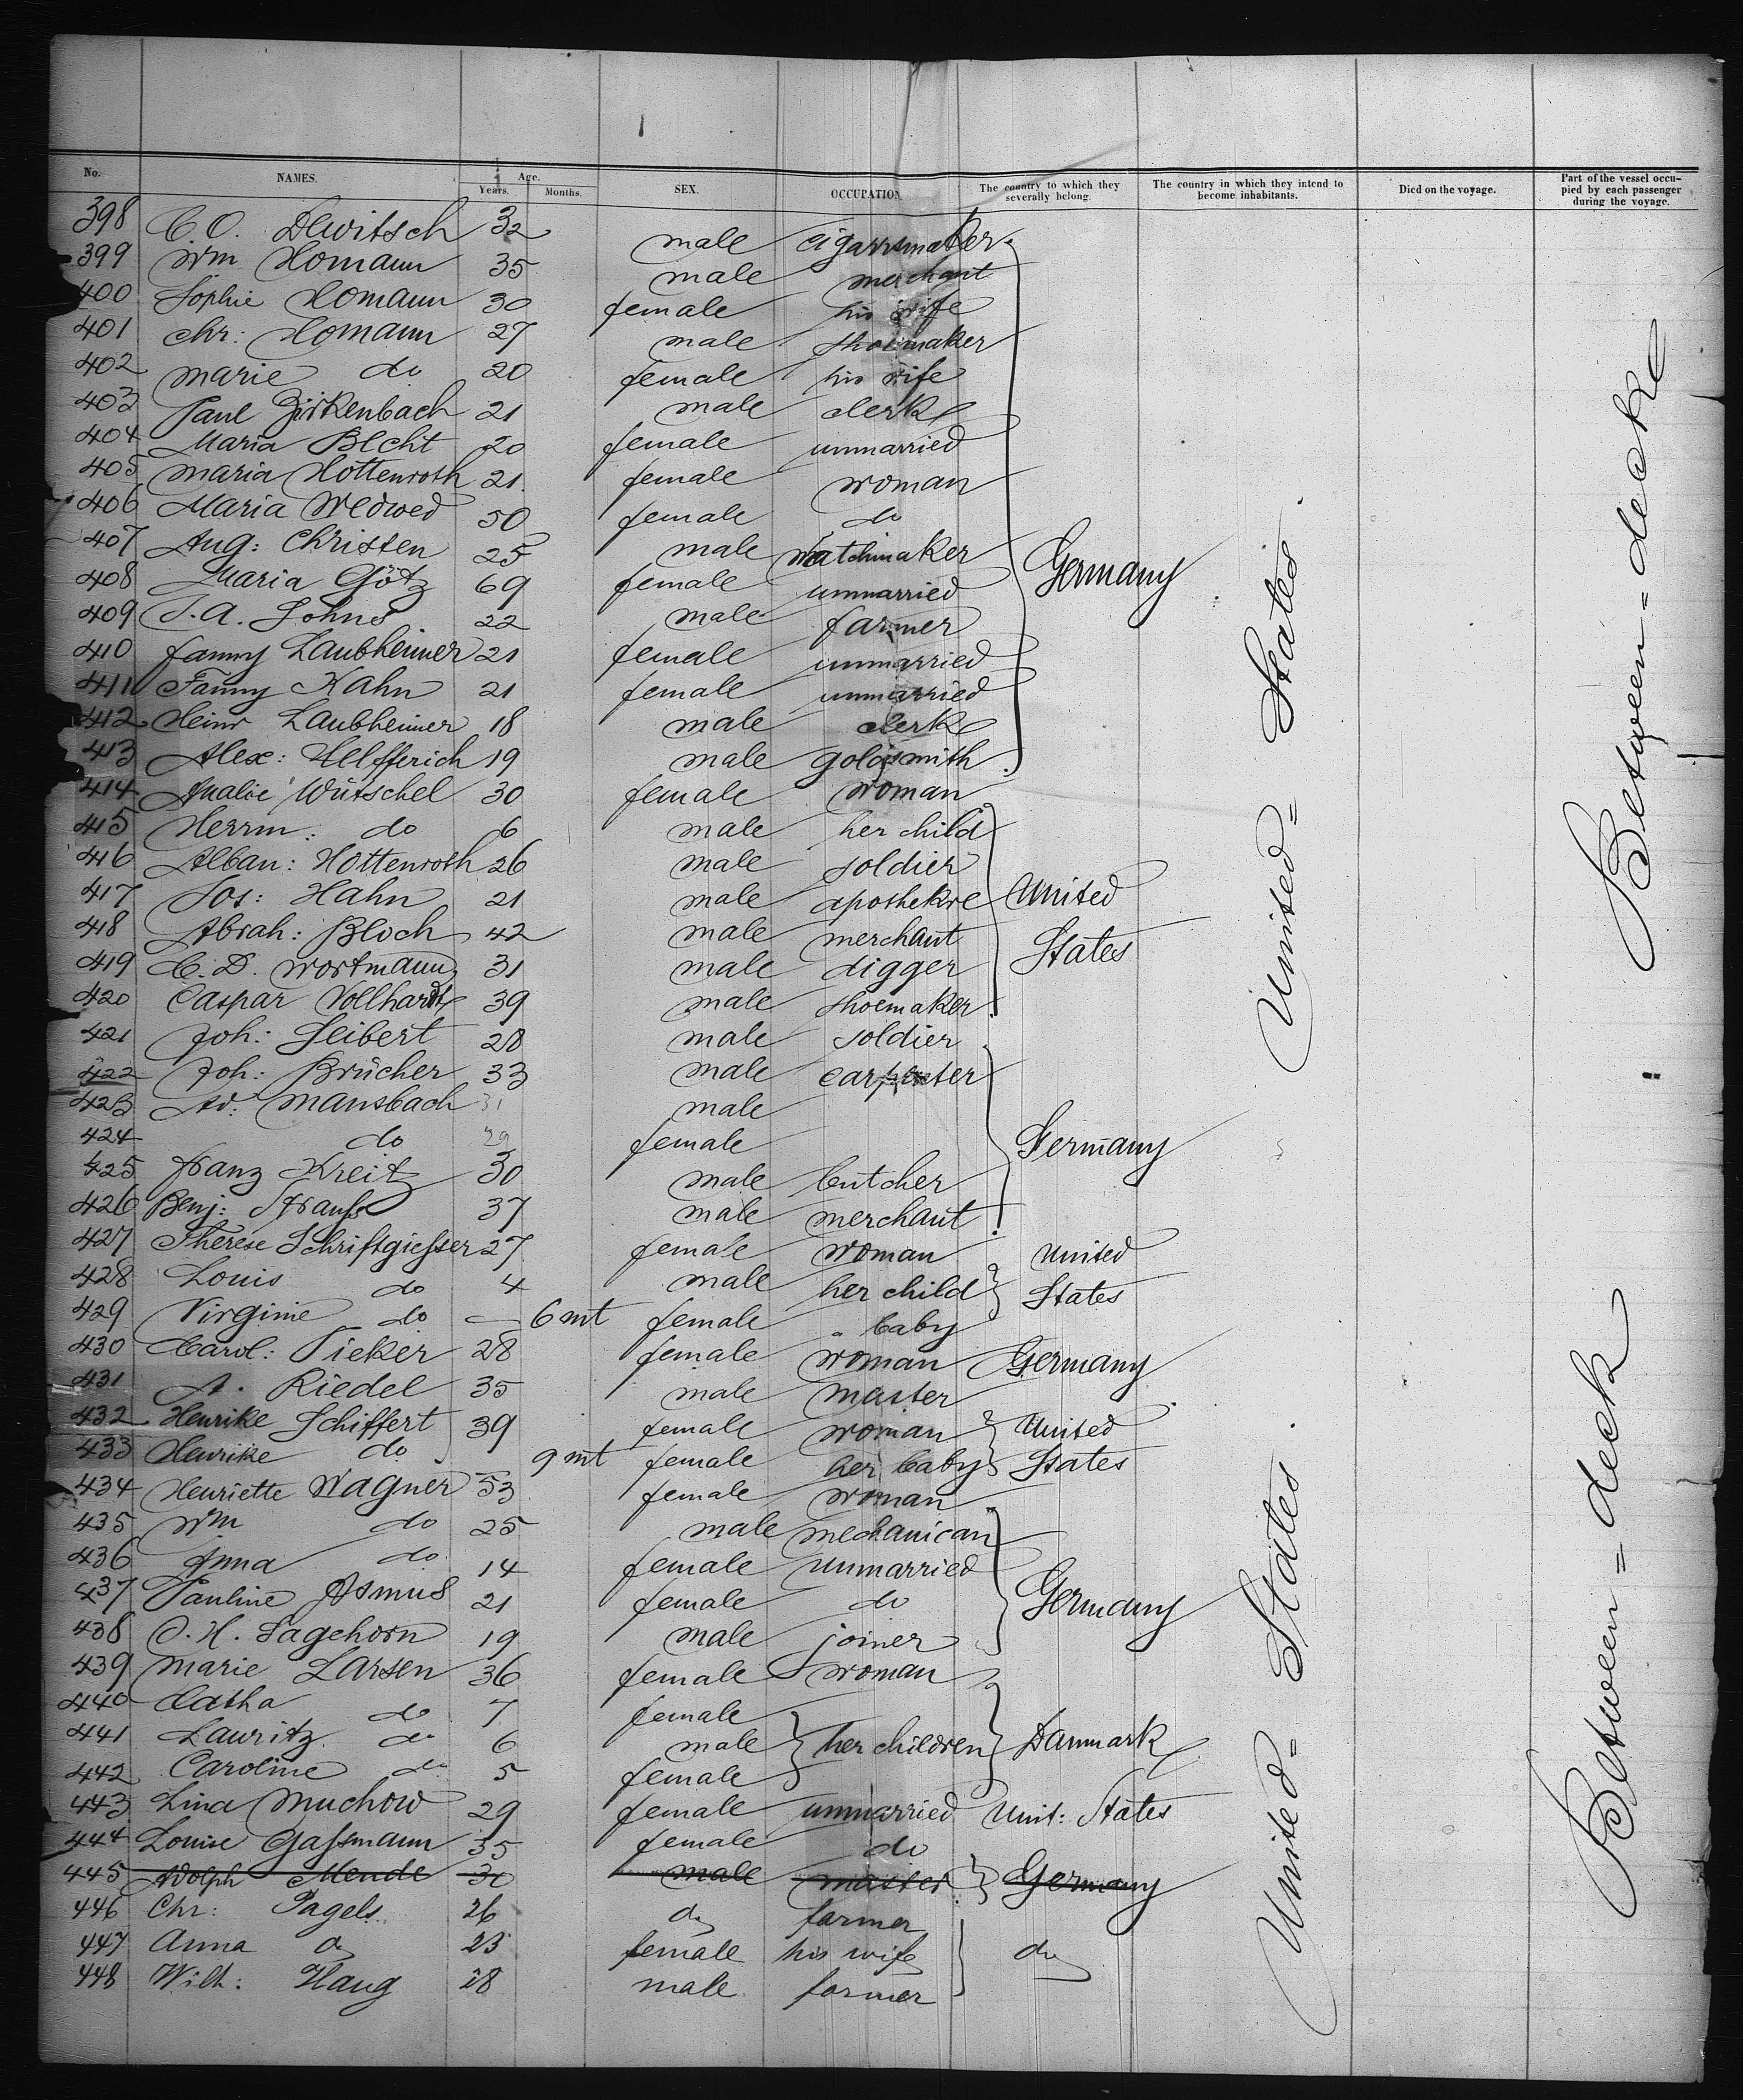 No. NAMES. Age. Years. Months. SEX. OCCUPATION. The country to which they severally belong. The country in which they intend to become inhabitants. Died on the voyage. Part of the vessel occupied by each passenger during the voyage.
398 C. O. 32 male cigarrsmaker
399 Wm Homann 35 male merchant
400 Sophie Homann 30 female his wife
401 Chr: Homann 27 male shoemaker
402 Marie do 20 female his wife
403 Paul Zirkenbach 21 male clerk
404 Maria Becht 20 female unmarried
405 Maria Hottenroth 21 female woman
406 Maria Wedwed 50 female do
407 Aug: Christen 25 male watchmaker Germany
408 Maria Götz 69 female unmarried
409 J. A. Johns 22 male farmer
410 Fanny Laubheimer 21 female unmarried
411 Fanny Kahn 21 female unmarried
412 Heinr Laubheimer 18 male clerk
413 Alex: Helfferich 19 male goldsmith
414 Amalie Wütschel 30 female woman
415 Herrm: do 6 male her child
416 Alban: Hottenroth 26 male soldier
417 Jos: Hahn 21 male apothekre United
418 Abrah: Bloch 42 male merchant States
419 C. D. Wortmann 31 male digger
420 Caspar Vollhardt 39 male shoemaker
421 Joh: Seibert 28 male soldier
422 Joh: Brücher 33 male carpenter
423 Ad: Mansbach 31 male
424 do 29 female Germany
425 Franz Kreitz 30 male butcher
426 Benj: Strauß 37 male merchant
427 Therese Schriftgießer 27 female woman United
428 Louis do 4 male her child States
429 Virginie do — 6 mt female " baby
430 Carol: Pieker 28 female woman Germany
431 A. Riedel 35 male master
432 Henrike Schiffert 39 female woman United
433 Henrike do 9 mt female her baby States
434 Henriette Wagner 53 female woman
435 Wm do 25 male mechanican
436 Anna do 14 female unmarried
437 Pauline Asmus 21 female do Germany
438 J. H. Sagehorn 19 male joiner
439 Marie Larsen 36 female woman
440 Catha do 7 female
441 Lauritz do 6 male her children Danmark
442 Caroline do 5 female
443 Lina Muchow 29 female unmarried Unit: States
444 Louise Gaßmann 35 female do
445 Adolph Mende 30 male master Germany
446 Chr: Pagels 26 do farmer
447 Anna do 23 female his wife do
448 Wilh: Haug 28 male farmer
United = States.
United = States.
Between = decke
Between = deck